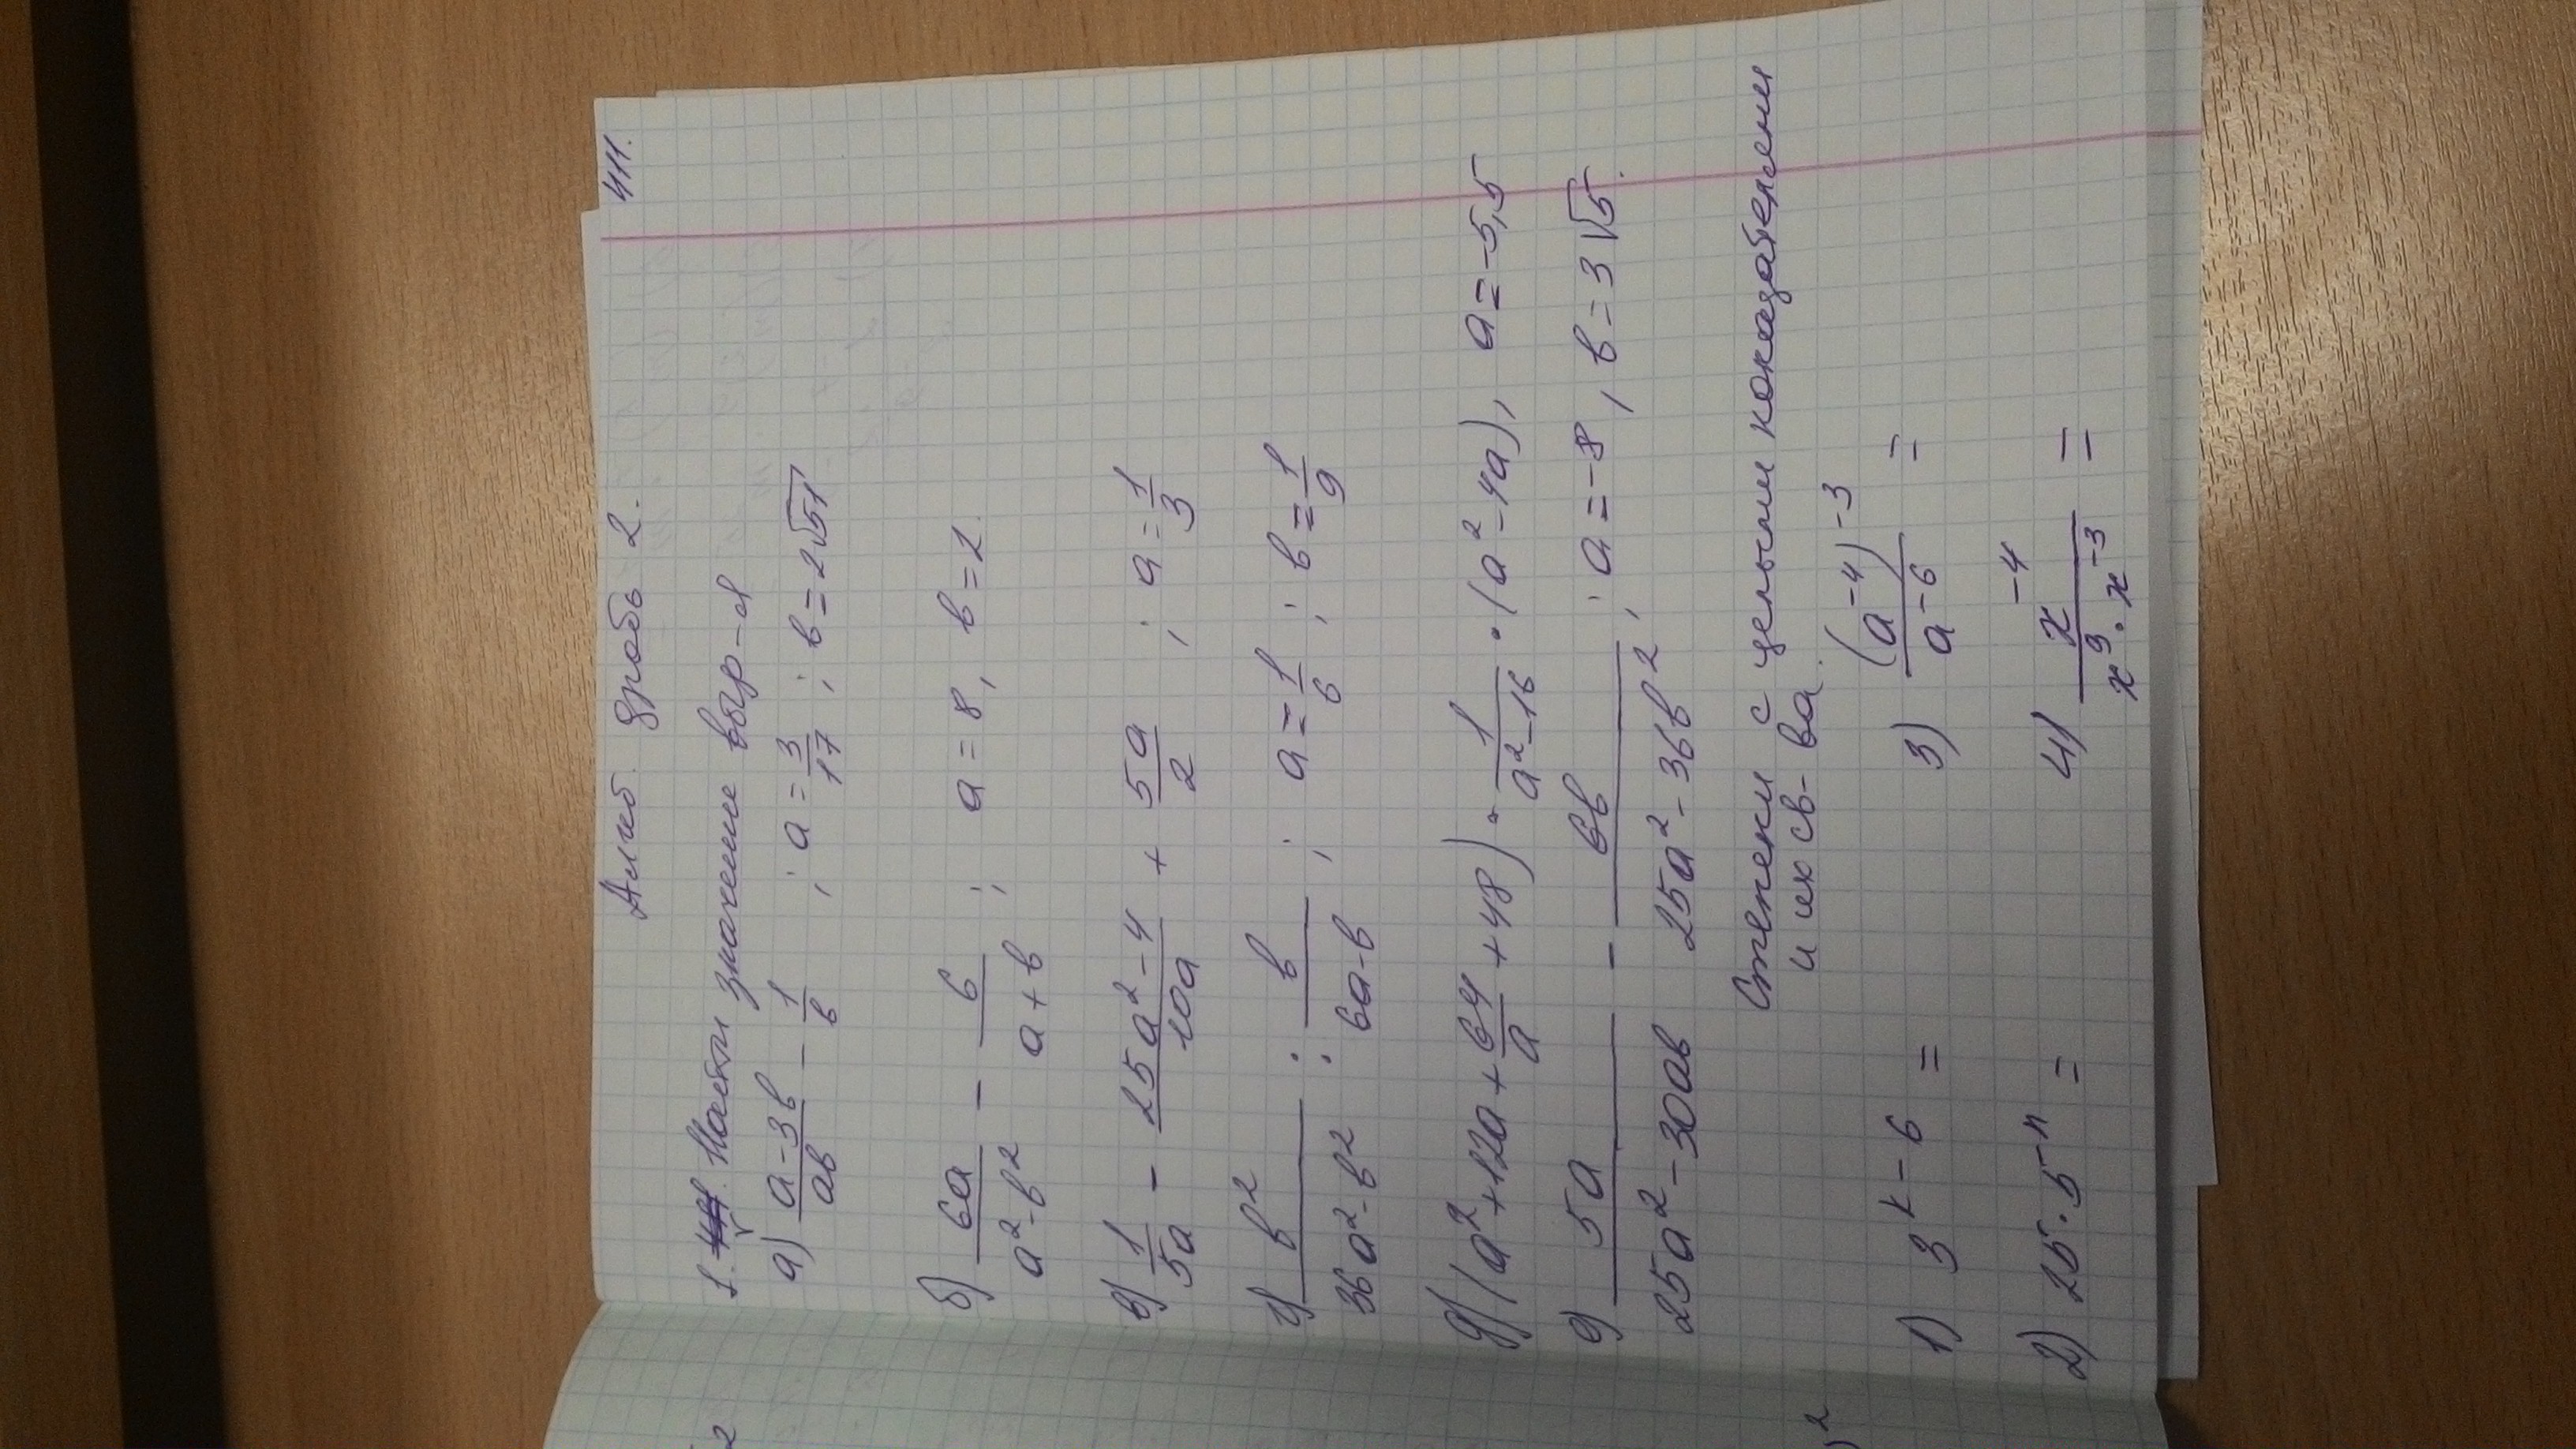 411.
Алгеб. дробь 2.
1. Найти значение выр-я
а) (a-3b)/(ab) - 1/b ; a = 3/17 ; b = 2√51
б) 6a/(a²-b²) - 6/(a+b) ; a = 8, b = 2.
в) 1/(5a) - (25a²-4)/(10a) + 5a/2 ; a = 1/3
г) b²/(36a²-b²) : b/(6a-b) ; a = 1/6 ; b = 1/9
д) (a²+12a+64/a+48) · 1/(a²-16) · (a²-4a), a = -5,5
е) 5a/(25a²-30ab) - 6b/(25a²-36b²) ; a = -8, b = 3√5.
Степени с целыми
и их св-ва.
1) 3^(k-6) = 3) (a⁻⁴)⁻³/a⁻⁶ =
2) 25 · 5⁻ⁿ = 4) x⁻⁴/(x⁹·x⁻³) =